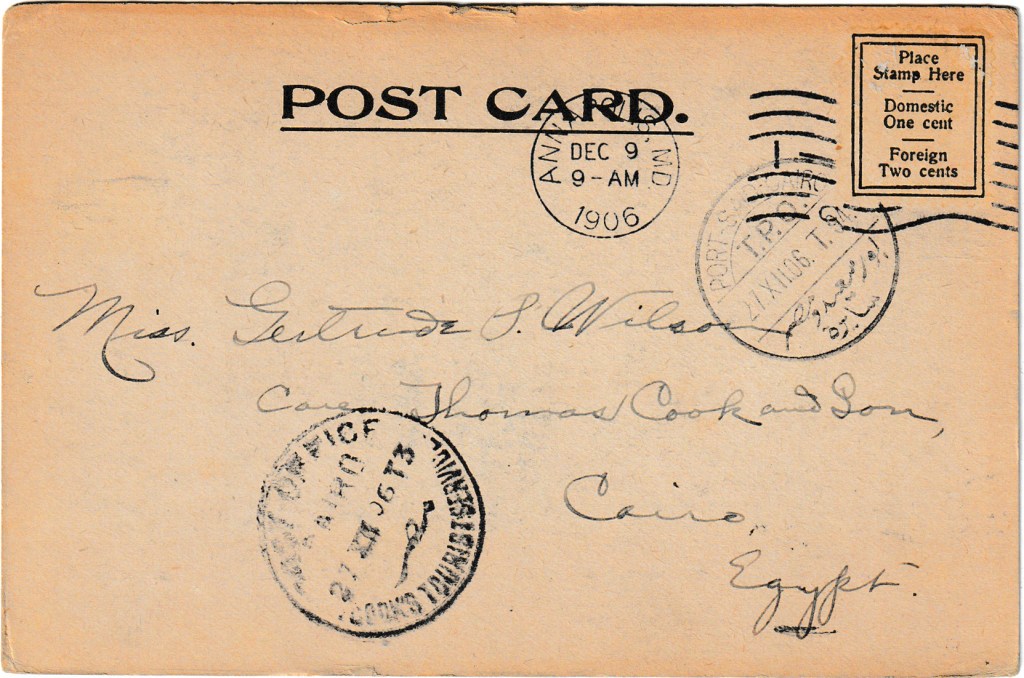 POST CARD.
Place
Stamp Here
Domestic
One cent
Foreign
Two cents
ANNAPOLIS, MD
DEC 9
9-AM
1906
PORT-SAID-CAIRO
T.P.O.
27 XII 06. T.
Miss. Gertrude S. Wilson
Care Thomas Cook and Son,
Cairo,
Egypt.
POST OFFICE
CAIRO
27 XII 06 T3
COOK'S TOURIST SERVICE